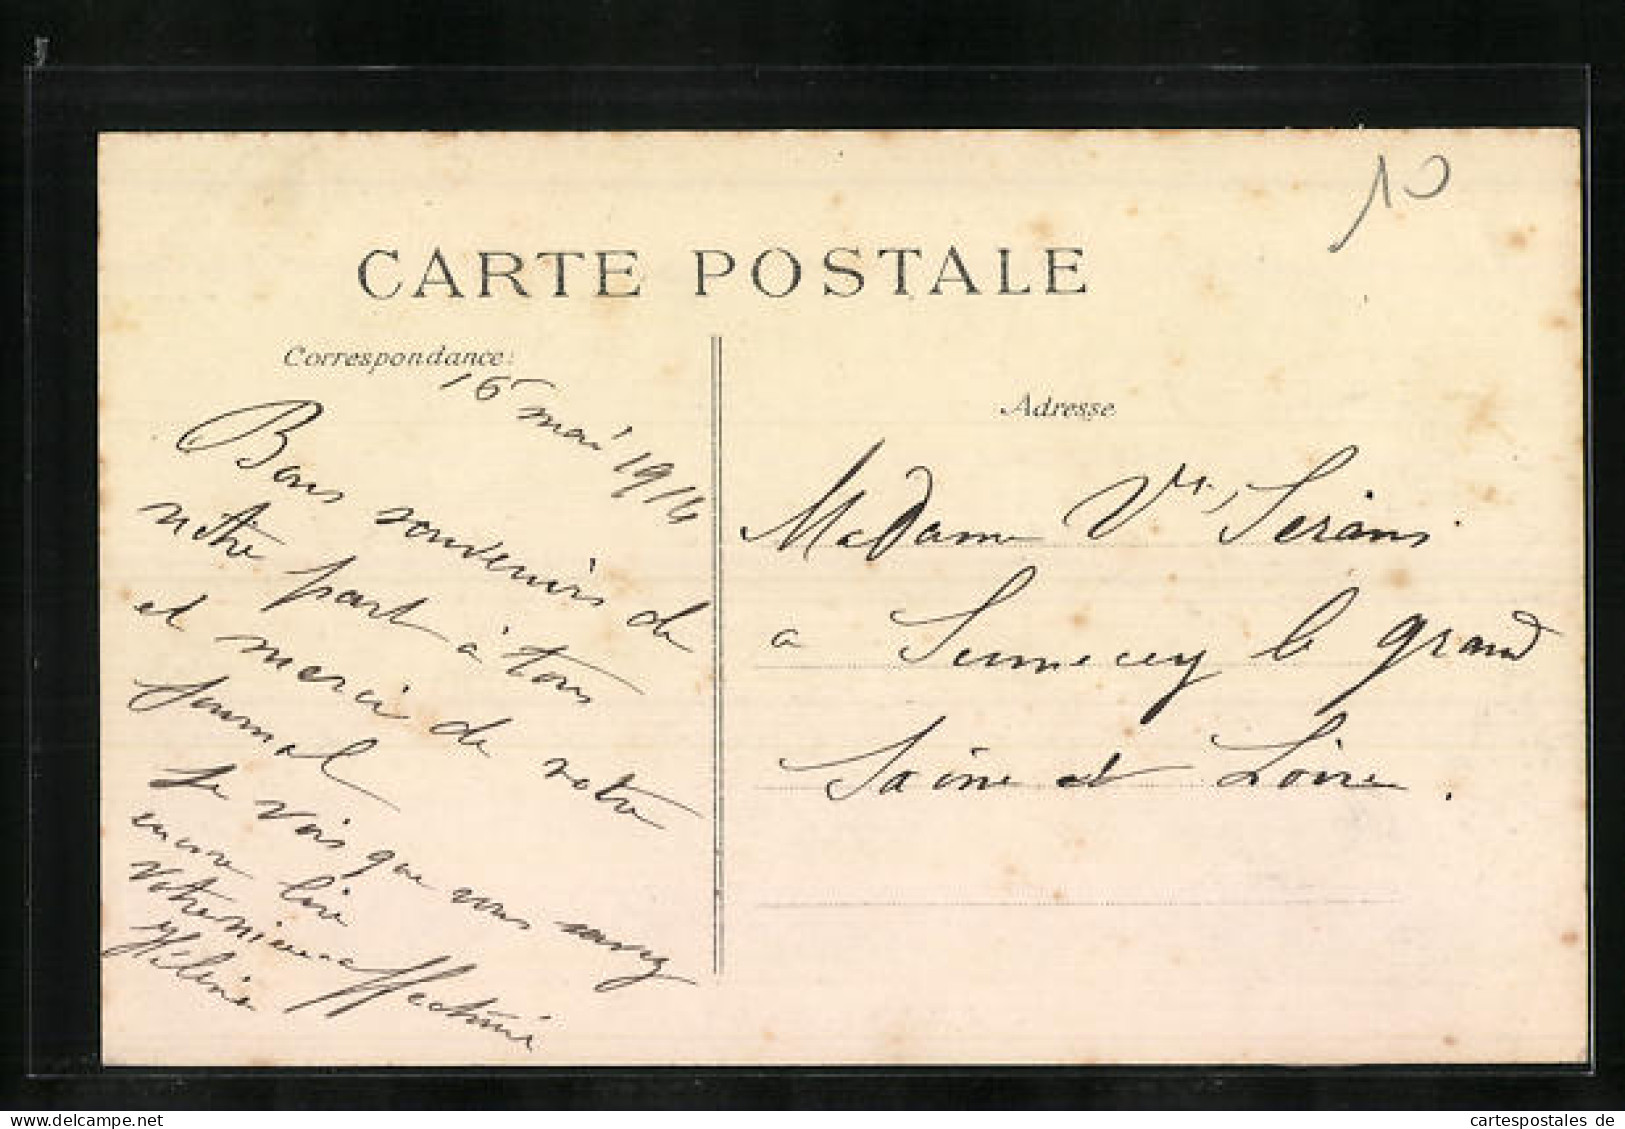 10
CARTE POSTALE
Correspondance:
16 mai 1914
Bons souvenirs de
notre part à tous
et merci de votre
journal
Je vois que vous savez
encore lire
votre nièce
Hélène
Adresse
Madame Vve
a Sennecey le grand
Saône et Loire.
cartespostales de